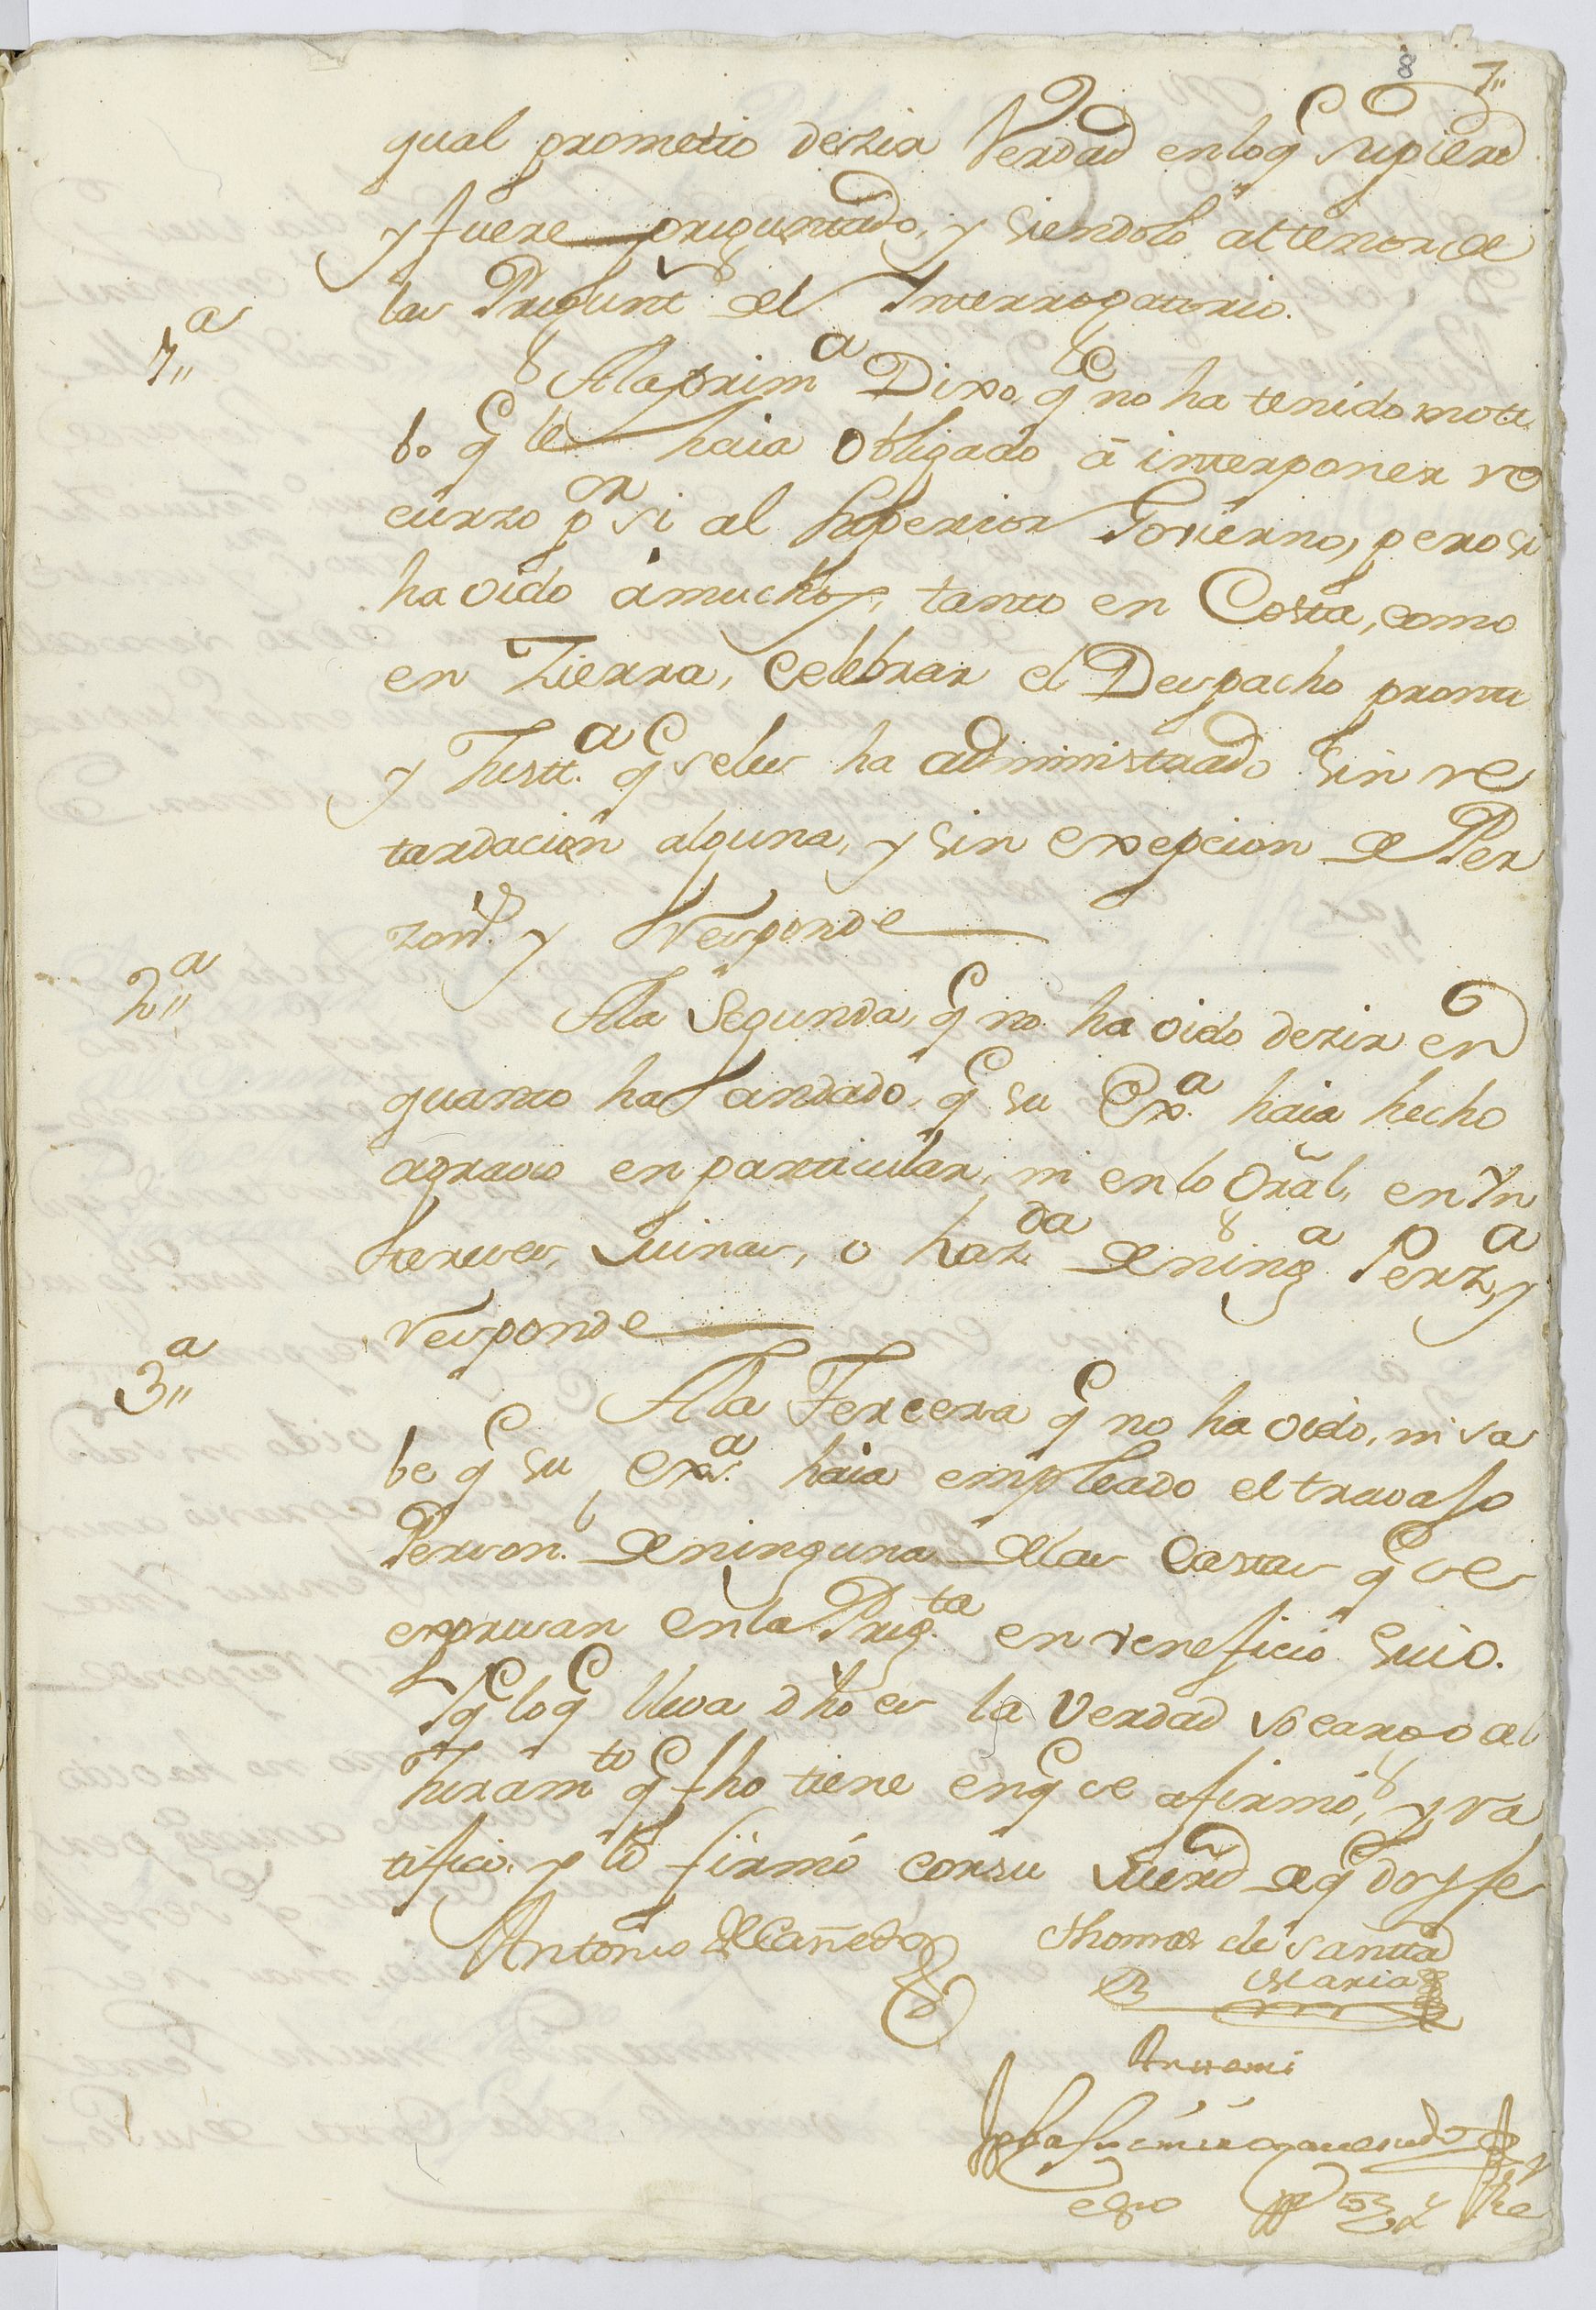 8 7"
qual prometio dezir Verdad en lo q supiere
y fuere preguntado, y siendolo al tenor de
las Pregunt.s del Interrogatorio.
1"a
A la prim.a Dixo, q no ha tenido moti
bo q le haia obligado â interponer re
curzo p.r si al Superior Govierno, pero si
ha oido a muchos, tanto en Costa, como
en Tierra, celebrar el Despacho pronto
y Justt.a q se les ha administrado sin re
tardacion alguna, y sin exepcion de Per
zon.s y Responde
2"a
A la Segunda, q no ha oido dezir en
quanto ha andado, q su Ex.a haia hecho
agravio en particular, ni en lo Gral, en Yn
terezes, Minas, o haz.da de ning.a Perz.a y
responde
3"a
A la Tercera q no ha oido, ni sa
be q su Ex.a haia empleado el travajo
Person.l de ninguna de las Castas q se
expresan en la Preg.ta en veneficio suio.
Y q lo q lleva dho es la Verdad so cargo del
Juram.to q fho tiene en q se afirmó, y ra
tificó, y lo firmó con su Merd de q doy fe
Antonio de Cañedo Thomas de Santta
Maria
Antte mi